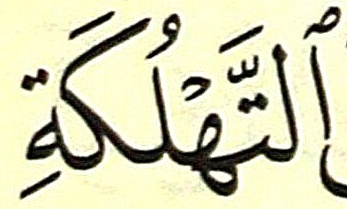 ٱلتَّهْلُكَةِ